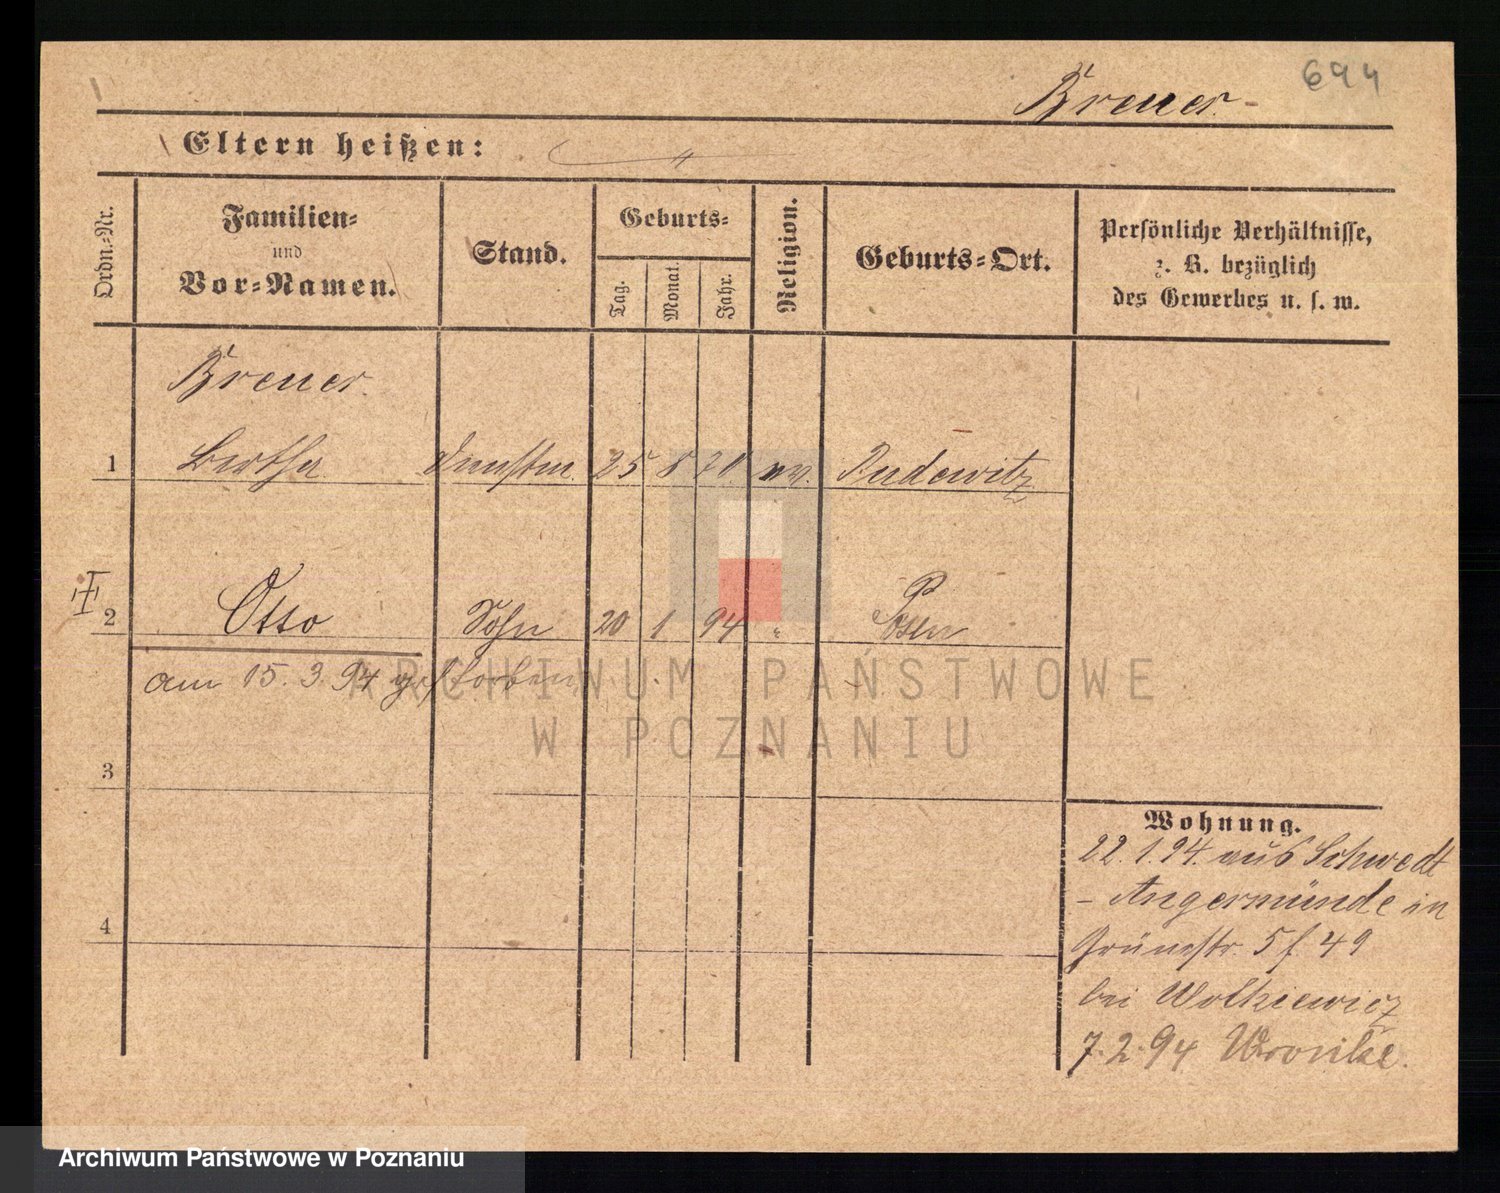 694
Breuer.
Eltern heißen:
Ordn.-Nr.
Familien-
und
Vor-Namen.
Stand.
Geburts-
Tag.
Monat.
Jahr.
Religion.
Geburts-Ort.
Persönliche Verhältnisse,
z. B. bezüglich
des Gewerbes u. s. w.
Breuer.
1 Bertha Dienstm. 25 8 70. ev. Pudewitz
2 Otto Sohn 20 1 94 " Posen
am 15.3.94 gestorben
3
4
Wohnung.
22.1.94. aus Schwedt
- Angermünde in
Grünestr. 5 f. 49
bei Wolkiewicz
7.2.94 Wronke.
ARCHIWUM PAŃSTWOWE
W POZNANIU
Archiwum Państwowe w Poznaniu